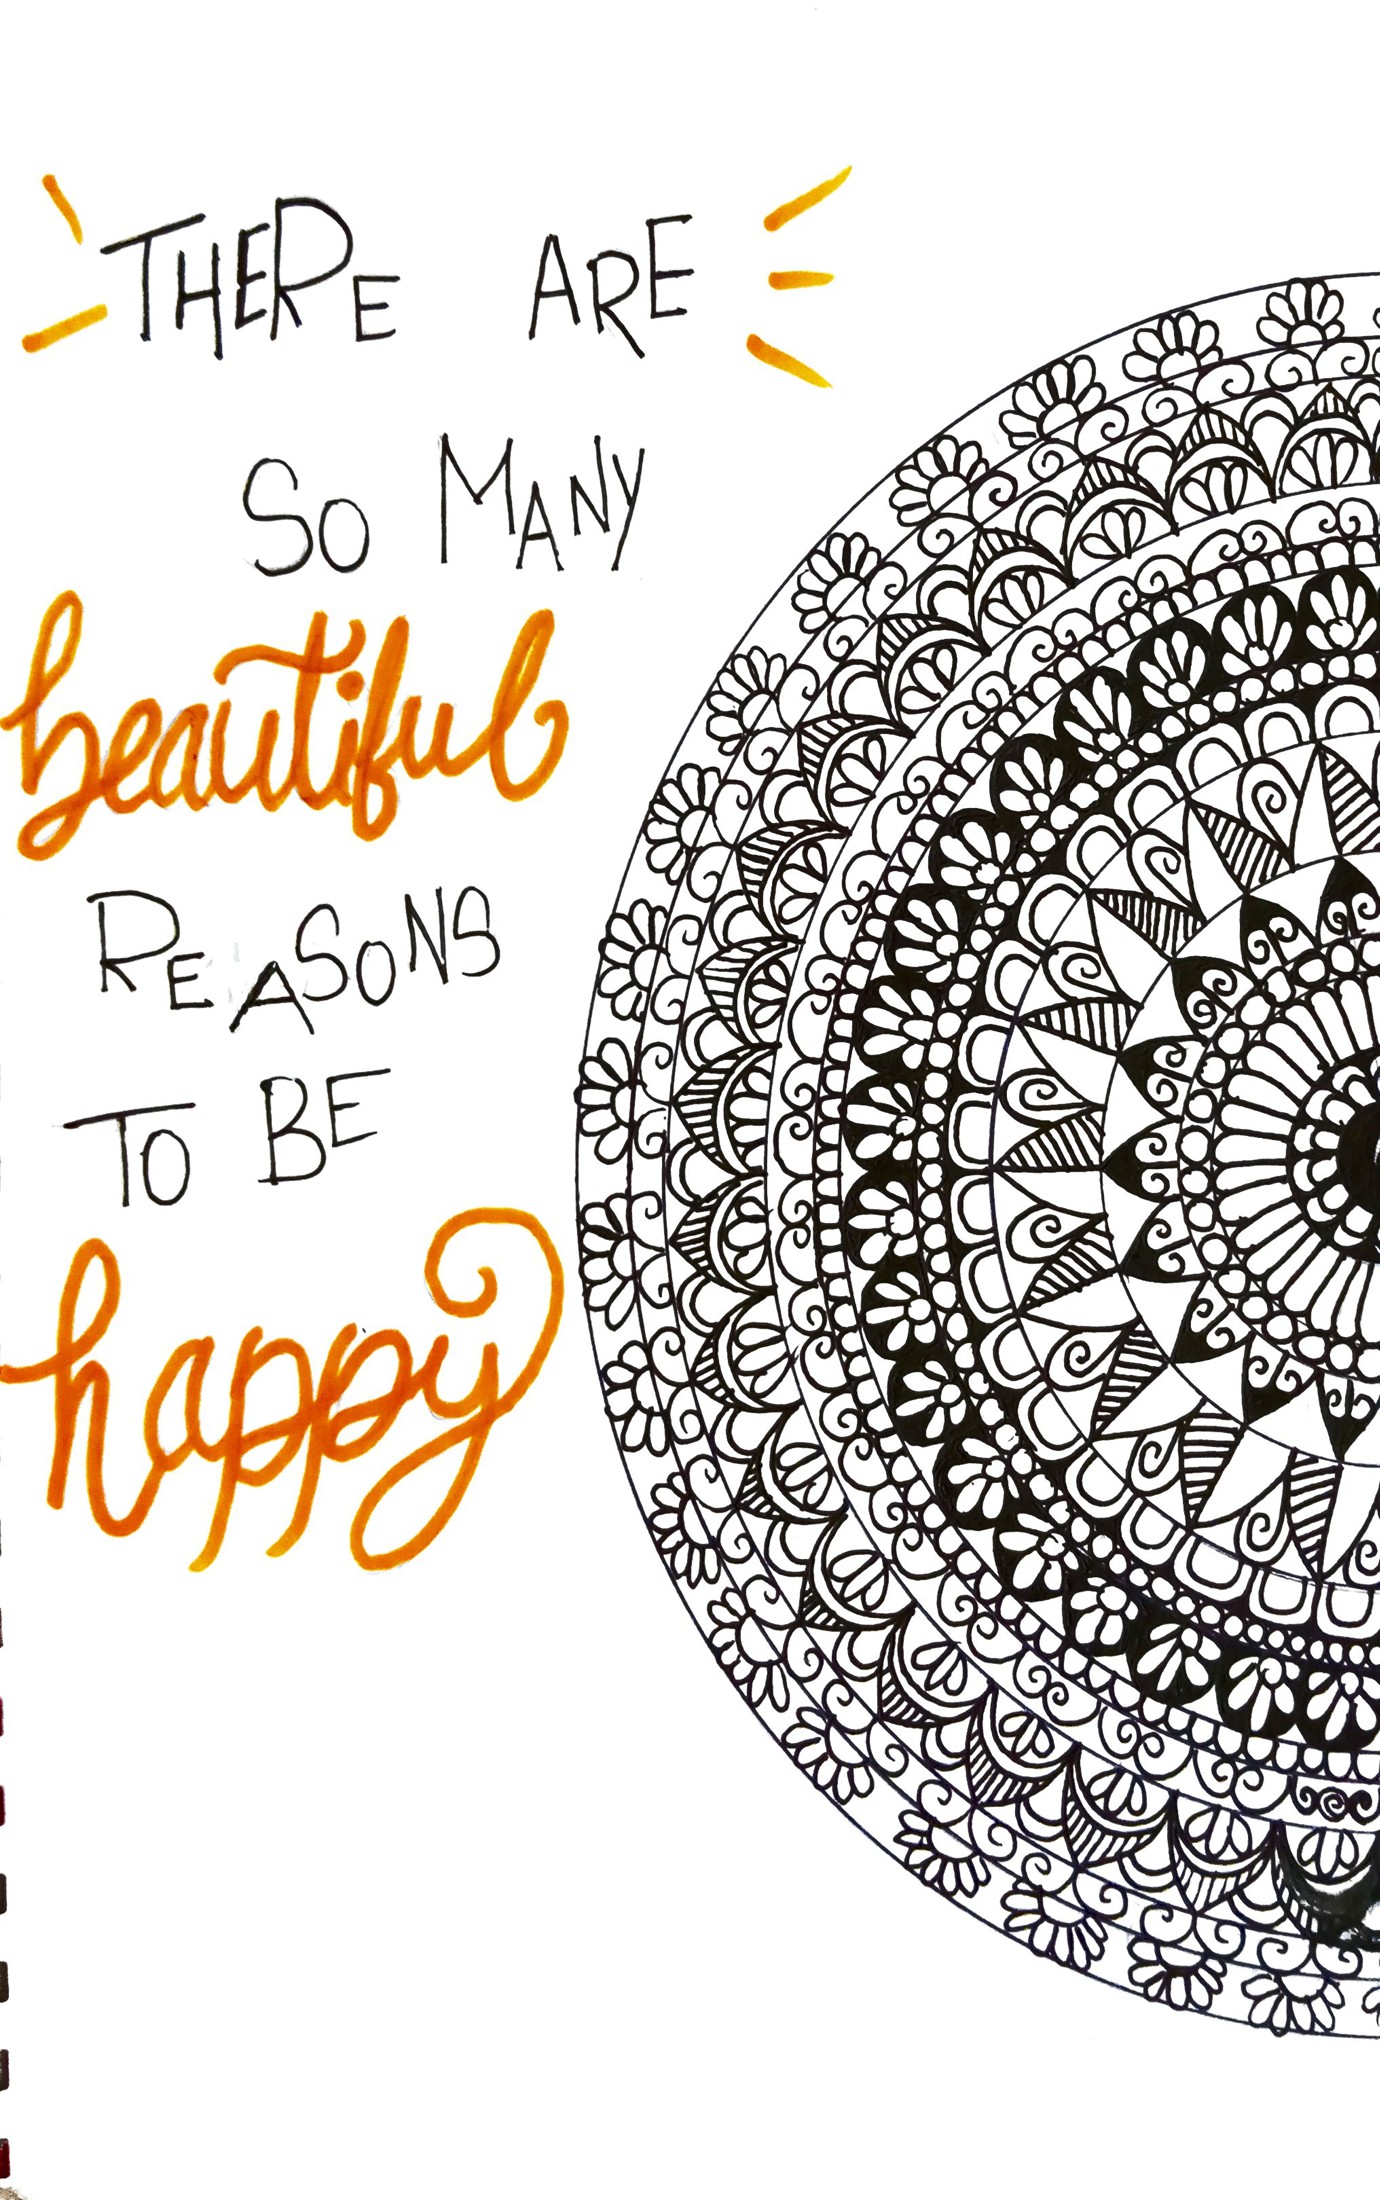 THERE ARE
SO MANY
beautiful
REASONS
TO BE
happy